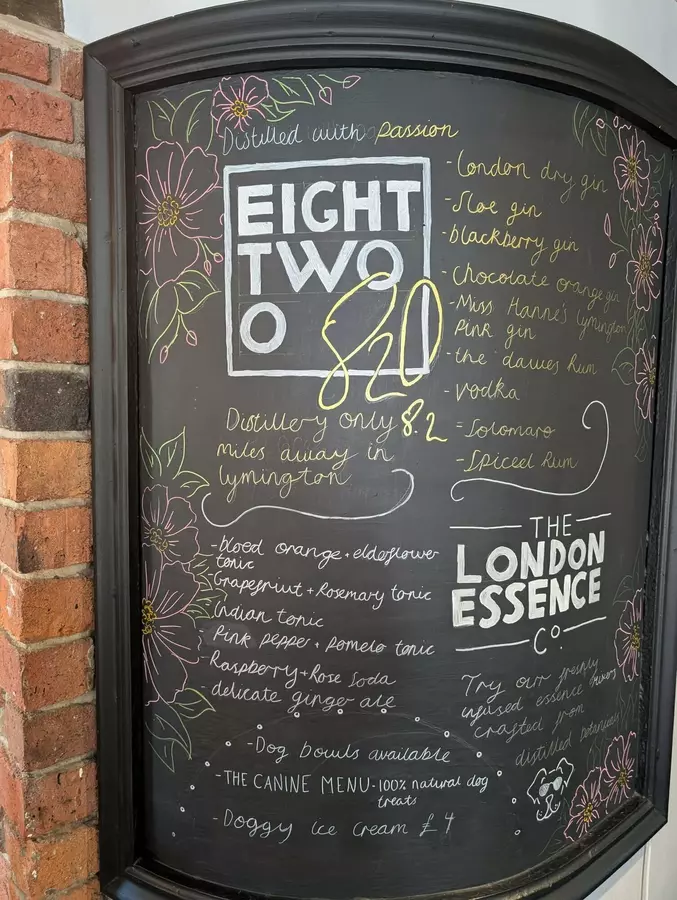 Distilled with passion
EIGHT
TWO
O
820
Distillery only 8.2
miles away in
lymington
-London dry gin
-Sloe gin
-blackberry gin
-Chocolate orange gin
-Miss Hanne's lymington
Pink gin
-the dawes Rum
-vodka
=Solomaro
-Spiced Rum
-blood orange + elderflower
tonic
-Grapefriut + Rosemary tonic
-Indian tonic
-Pink pepper + Pomelo tonic
-Raspberry + Rose Soda
-delicate ginger ale
THE
LONDON
ESSENCE
Co.
Try our freshly
infused essence mixers
crafted from
distilled botanicals
-Dog bowls available
-THE CANINE MENU-100% natural dog
treats
-Doggy ice cream £4